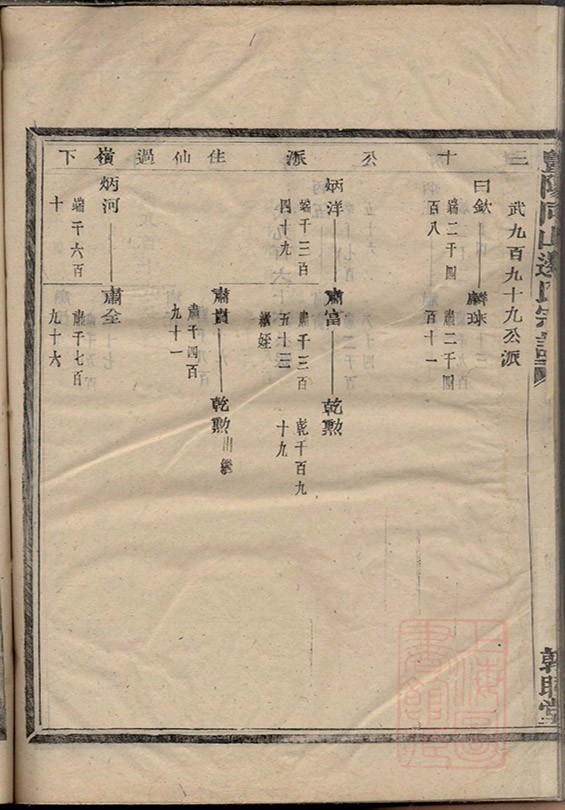 暨陽同山邊氏宗譜
三十公派住仙過嶺下
武九百九十九公派
曰欽 麟珠
端二千四 肅二千四
百八 百十一
炳洋 肅富 乾勲
端千三百 肅千三百 乾千百九
四十九 五十三 十九
繼姪
肅貴 乾勲
肅千四百 繼
九十一
炳河 肅全
端千六百 肅千七百
十 九十六
上海圖書館藏